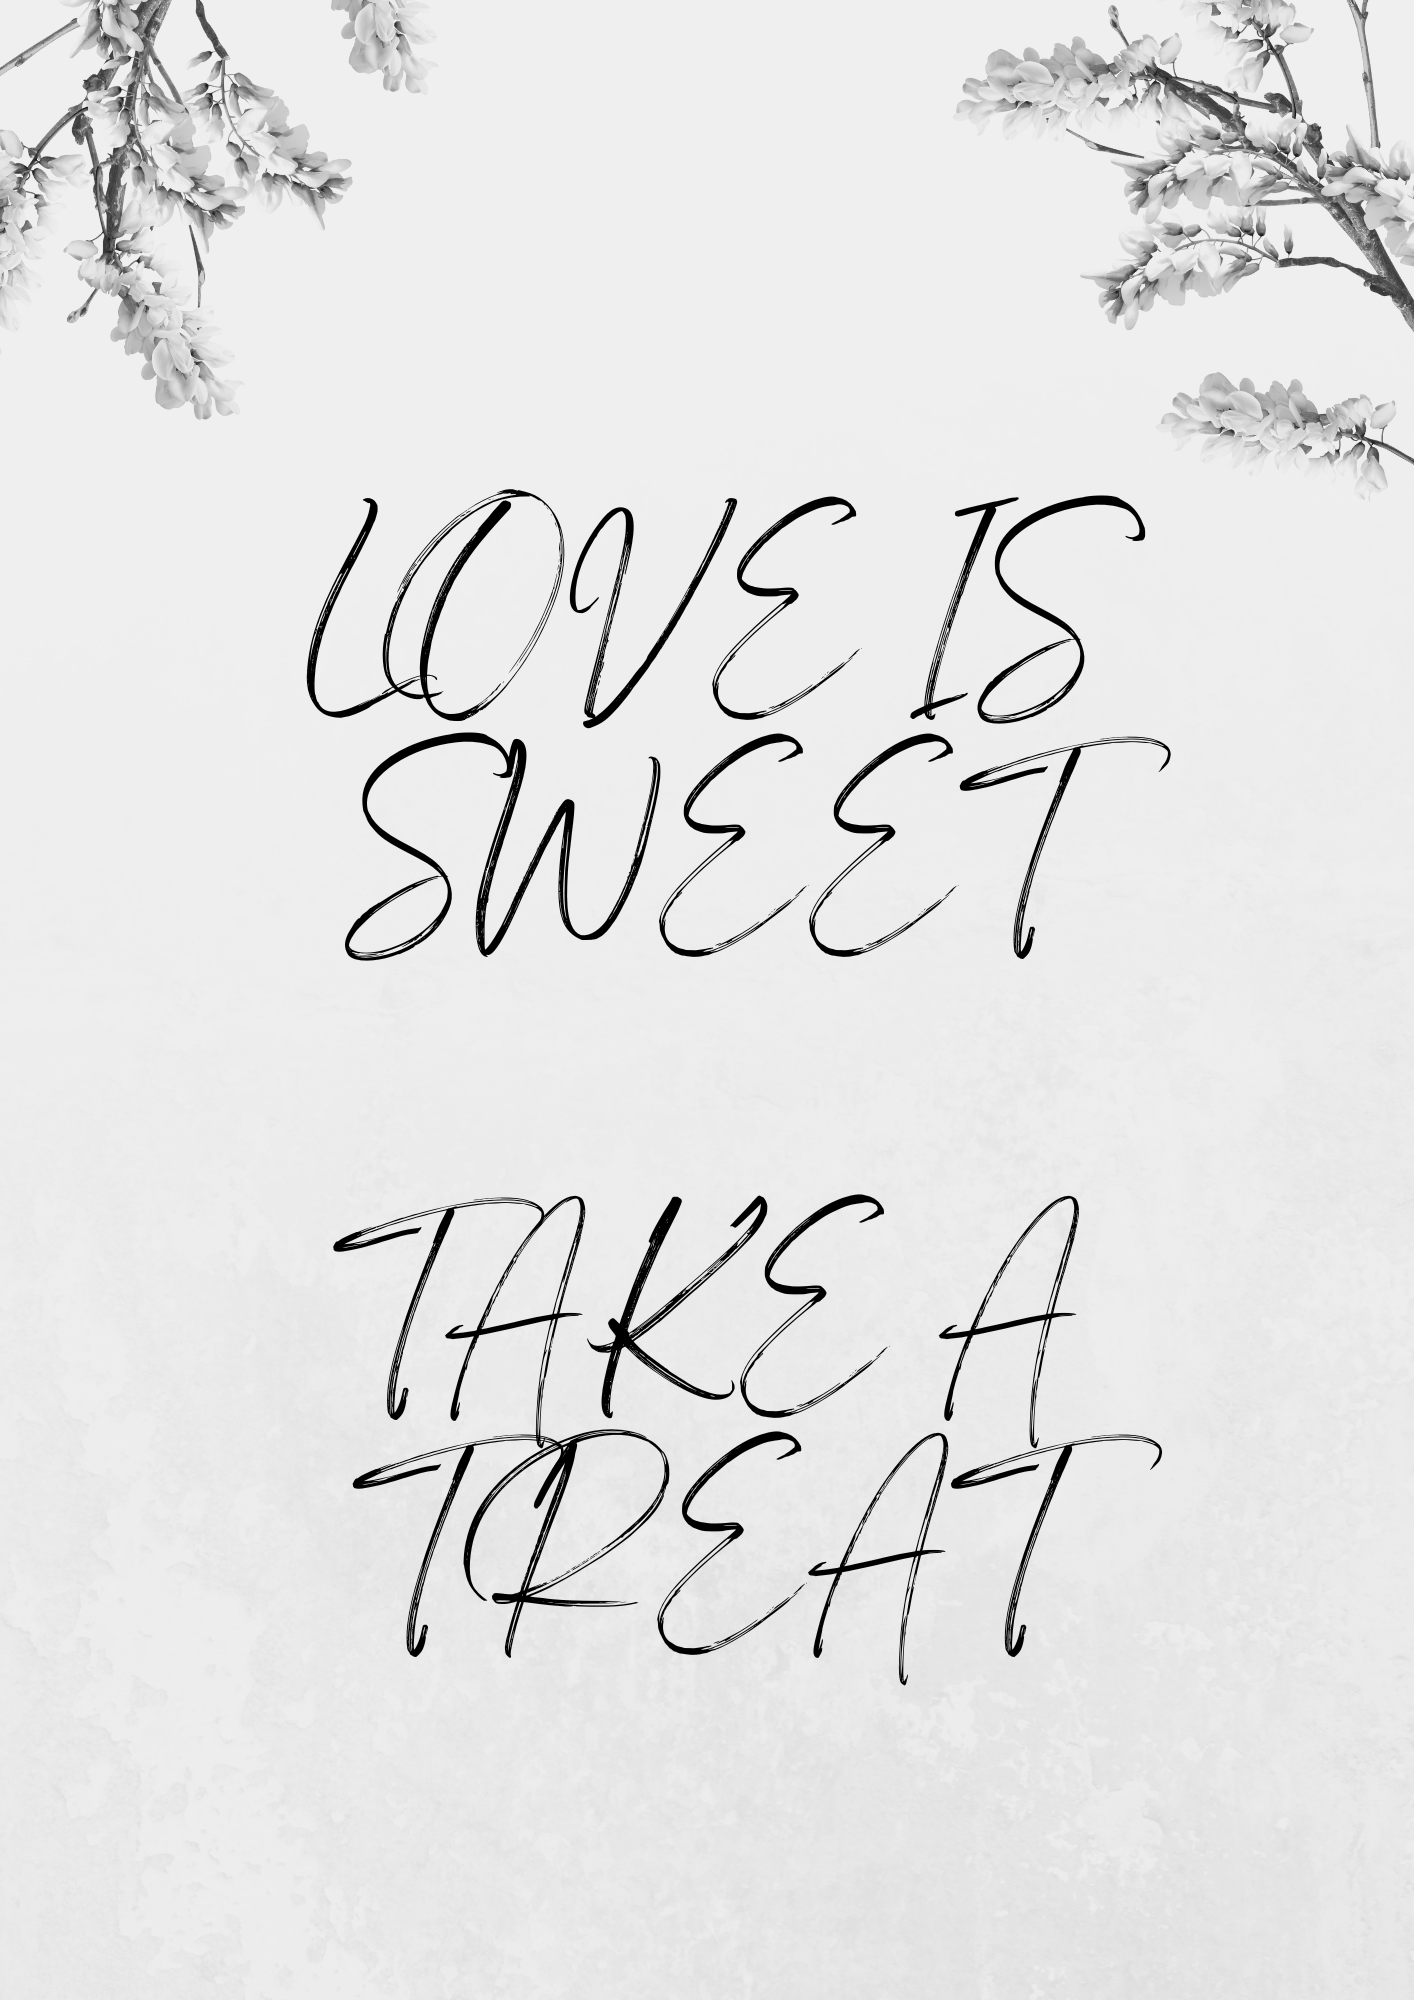 LOVE IS
SWEET
TAKE A
TREAT